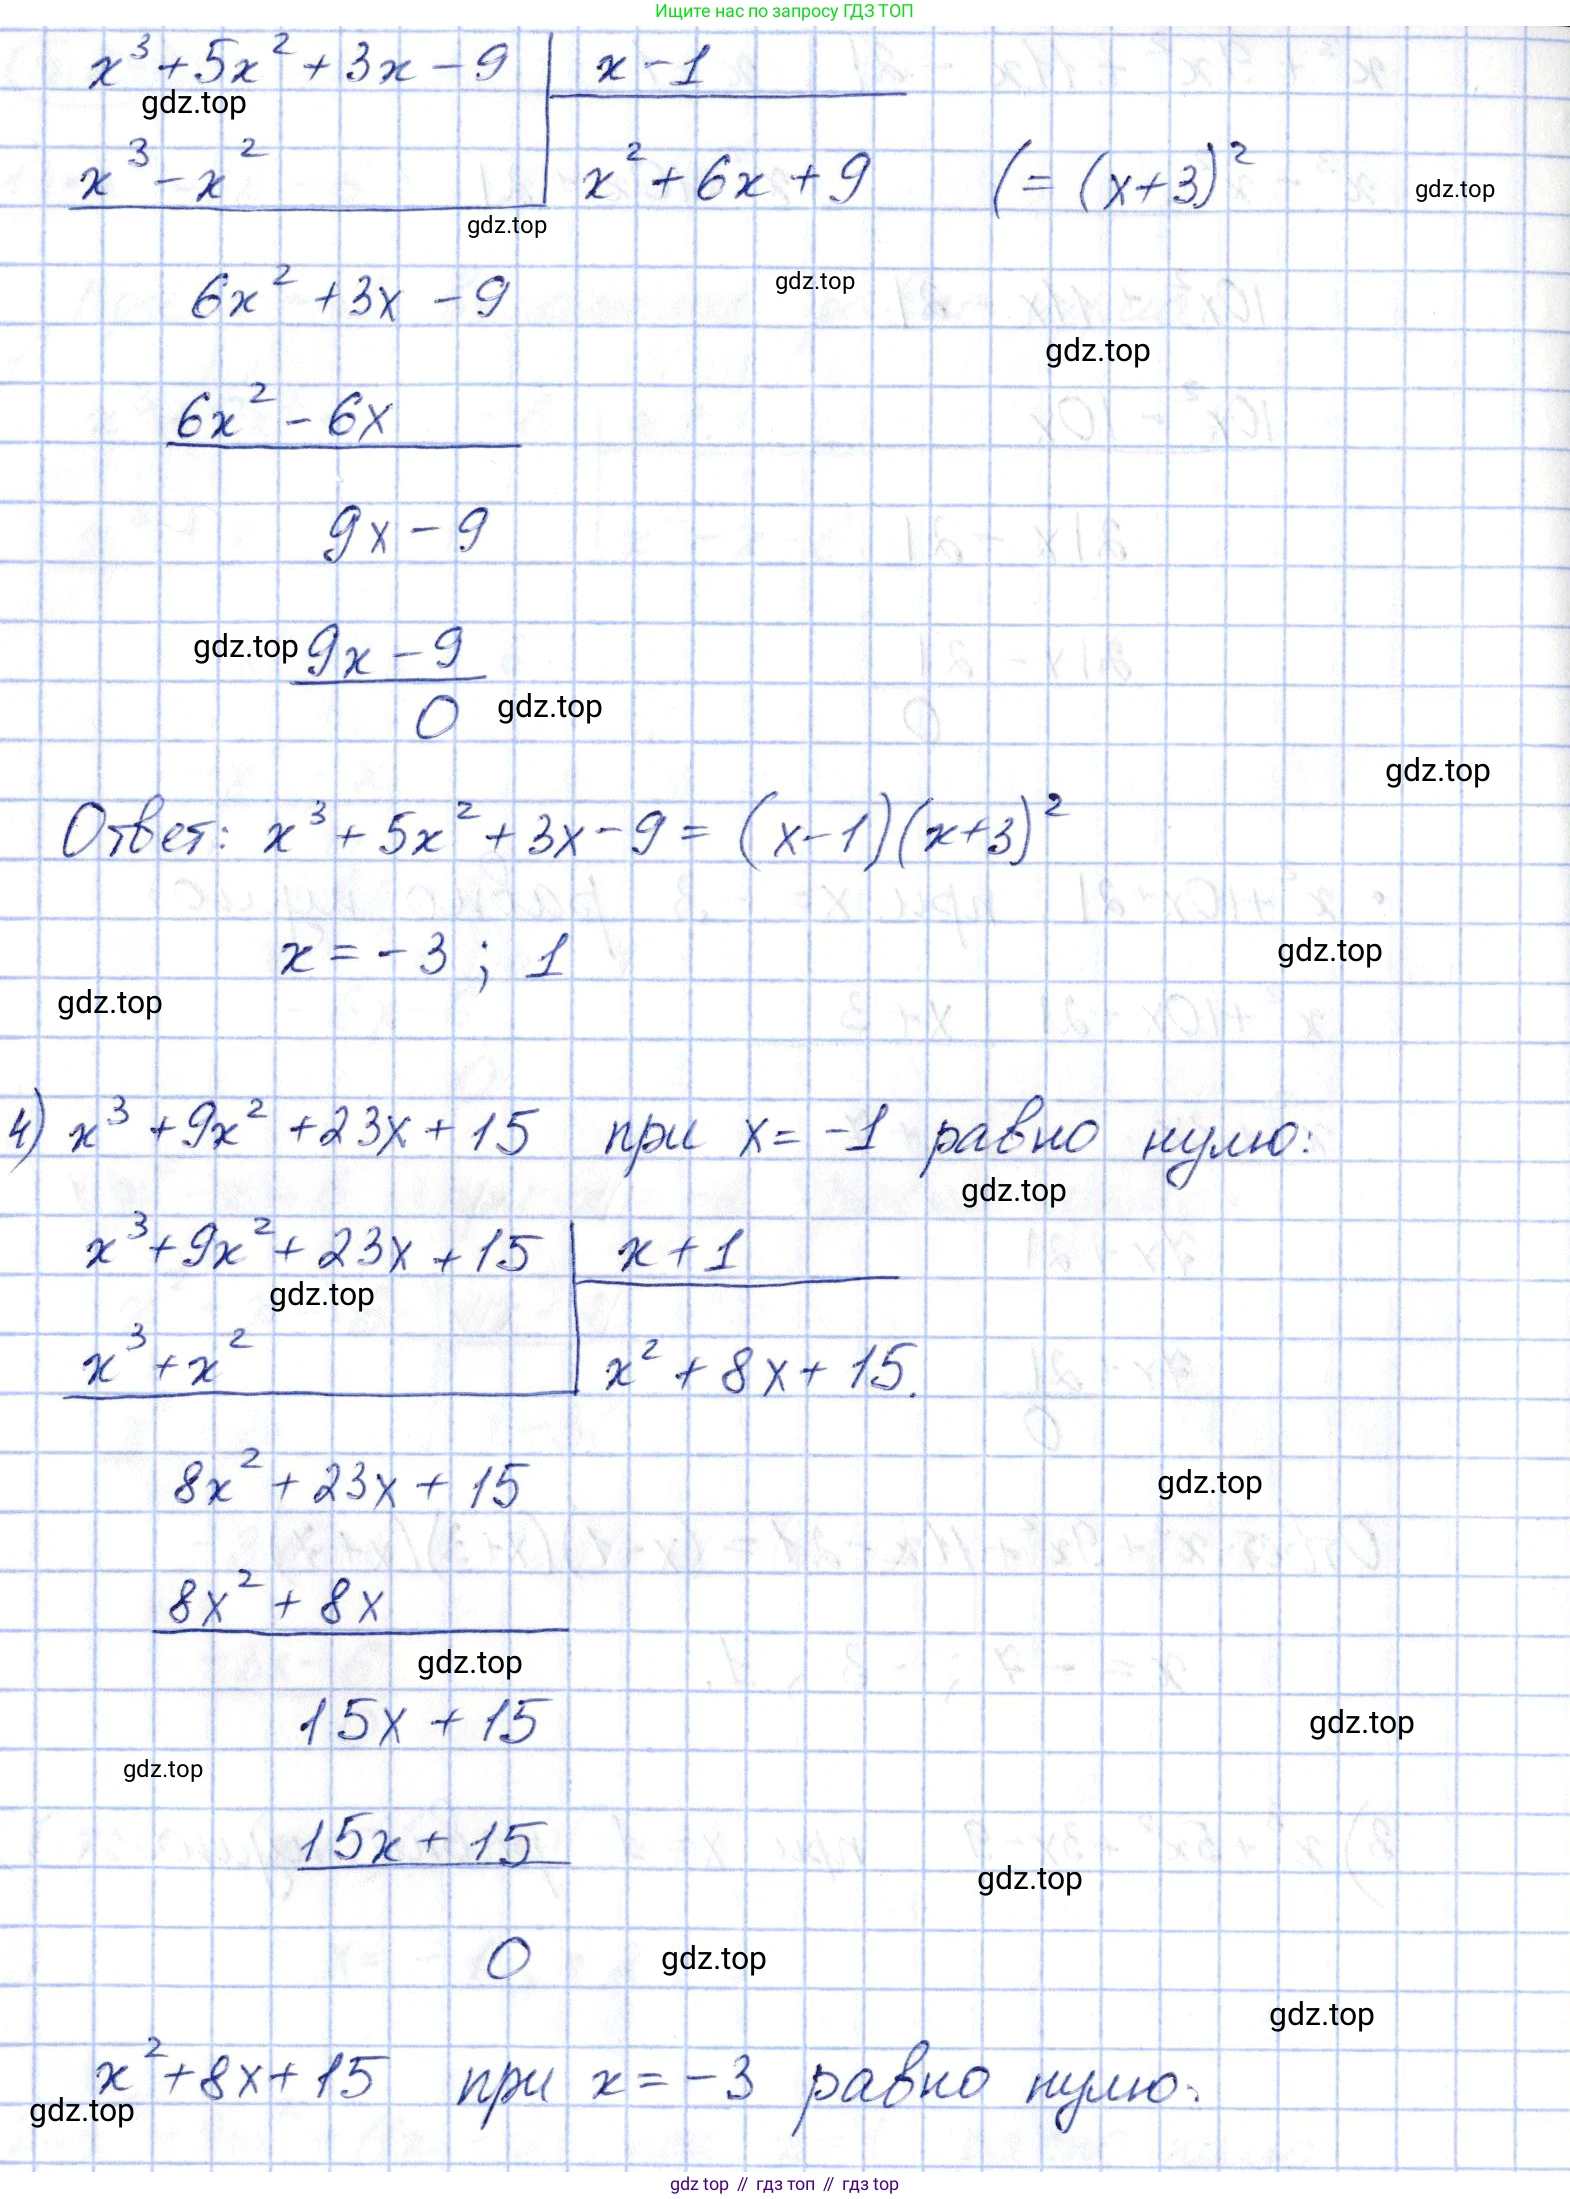 Ищите нас по запросу ГДЗ ТОП
x³ + 5x² + 3x - 9 | x - 1
gdz.top
x³ - x² x² + 6x + 9 (= (x+3)²
gdz.top
gdz.top
6x² + 3x - 9
gdz.top
gdz.top
6x² - 6x
9x - 9
gdz.top 9x - 9
0 gdz.top
gdz.top
Ответ: x³ + 5x² + 3x - 9 = (x-1)(x+3)²
x = -3 ; 1
gdz.top
gdz.top
4) x³ + 9x² + 23x + 15 при x = -1 равно нулю:
gdz.top
x³ + 9x² + 23x + 15 | x + 1
gdz.top
x³ + x² x² + 8x + 15.
8x² + 23x + 15
gdz.top
8x² + 8x
gdz.top
15x + 15
gdz.top
gdz.top
15x + 15
gdz.top
0 gdz.top
gdz.top
x² + 8x + 15 при x = -3 равно нулю.
gdz.top
gdz top // гдз топ // gdz top